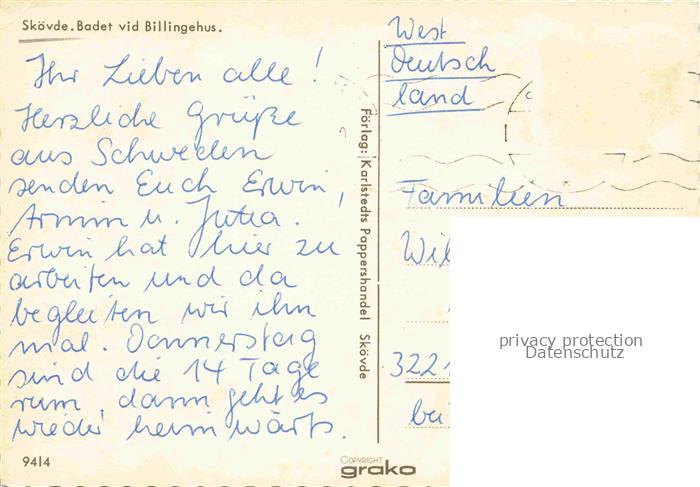 Skövde. Badet vid Billingehus.
Ihr Lieben alle!
Herzliche Grüße
aus Schweden
senden Euch Erwin,
Armin u. Jutta.
Erwin hat hier zu
arbeiten und da
begleiten wir ihn
mal. Donnerstag
sind die 14 Tage
rum, dann geht es
wieder heimwärts.
9414
Förlag: Karlstedts Pappershandel Skövde
COPYRIGHT
grako
West
deutsch
land
Familien
Wil
322
bei
privacy protection
Datenschutz